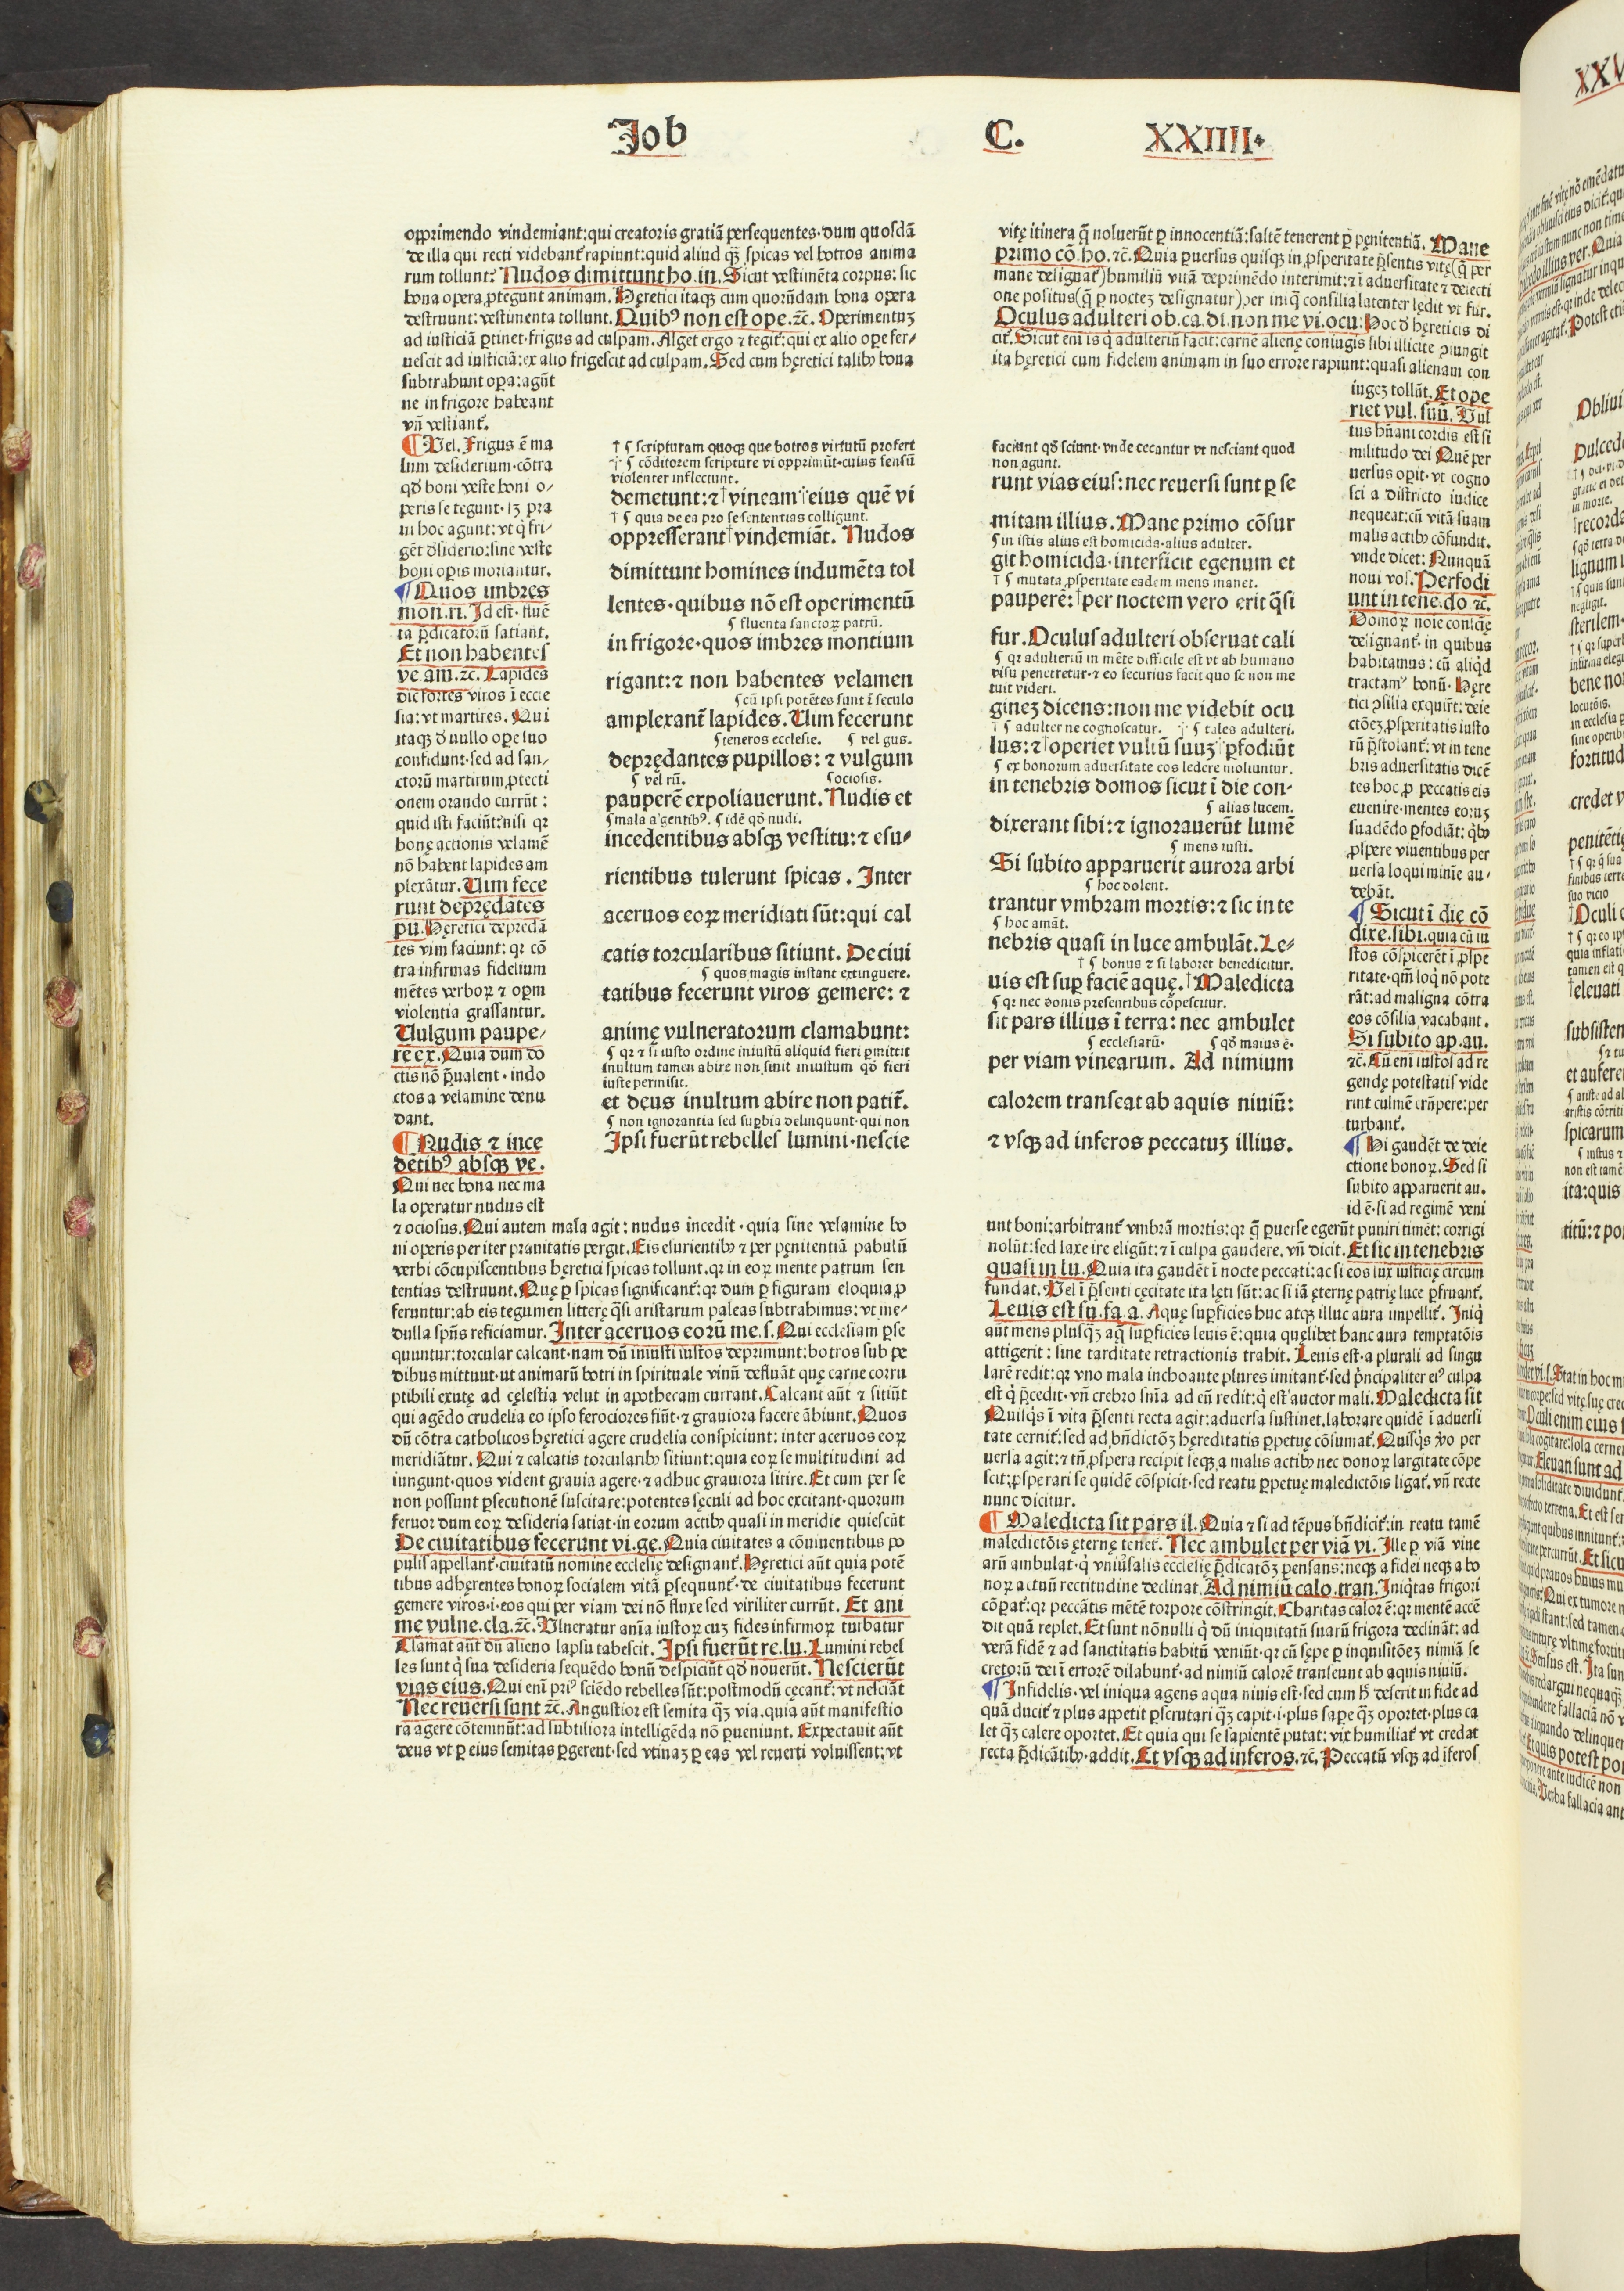 Job C. XXIIII.
opprimendo vindemiant: qui creatoris gratiā persequentes. dum quosdā
de illa qui recti videbant̃ rapiunt: quid aliud qꝫ spicas vel botros anima
rum tollunt? Nudos dimittunt ho. in. Sicut vestimēta corpus: sic
bona opera ꝓtegunt animam. Hęretici itaqꝫ cum quorūdam bona opera
destruunt: vestimenta tollunt. Quibꝰ non est ope. ⁊c̄. Operimentuꝫ
ad iusticiā ꝑtinet. frigus ad culpam. Alget ergo ⁊ tegit̃: qui ex alio oꝑe fer/
uescit ad iusticiā: ex alio frigescit ad culpam. Sed cum hęretici talibꝰ bona
subtrahunt oꝑa: agūt
ne in frigore habeant
vn̄ vestiant̃.
¶ Vel. Frigus ē ma
lum desiderium. cōtra
qd̄ boni veste boni o/
peris se tegunt. iꝫ pra
ui hoc agunt: vt q̇ fri/
gēt d̄siderio: sine veste
boni oꝑis moriantur.
¶ Quos imbres
mon. ri. Id est. fluē
ta p̄dicatorū satiant.
Et non habentes
ve. am. ⁊c̄. Lapides
dic̄ fortes viros ī eccle
sia: vt martires. Qui
itaqꝫ d̄ nullo oꝑe suo
confidunt. sed ad san/
ctorū martirum ꝓtecti
onem orando currūt:
quid isti faciūt: nisi qꝛ
bonę actionis velamē
nō habent lapides am
plexātur. Uim fece
runt depręda̅tes
pu. Hęretici depredā
tes vim faciunt: qꝛ cō
tra infirmas fidelium
mētes verboꝝ ⁊ oꝑm
violentia grassantur.
Uulgum paupe/
rē ex. Quia dum do
ctis nō p̄ualent. indo
ctos a velamine denu
dant.
¶ Nudis ⁊ ince
dētibꝰ absqꝫ ve.
Qui nec bona nec ma
la operatur nudus est
⁊ ociosus. Qui autem mala agit: nudus incedit. quia sine velamine bo
ni operis per iter prauitatis pergit. Eis esurientibꝰ ⁊ per pęnitentiā pabulū
verbi cōcupiscentibus hęretici spicas tollunt. qꝛ in eoꝝ mente patrum sen
tentias destruunt. Quę ꝑ spicas significant̃: qꝛ dum ꝑ figuram eloquia ꝓ
feruntur: ab eis tegumen litterę q̄si aristarum paleas subtrahimus: vt me/
dulla sp̄ns reficiamur. Inter aceruos eorū me. s. Qui ecclesiam ꝑse
quuntur: torcular calcant. nam dū iniusti iustos deprimunt: botros sub pe
dibus mittunt. ut animarū botri in spirituale vinū defluāt quę carne corru
ptibili exutę ad cęlestia velut in apothecam currant. Calcant aūt ⁊ sitiūt
qui agēdo crudelia eo ipso ferociores fiūt. ⁊ grauiora facere ābiunt. Quos
dū cōtra catholicos hęretici agere crudelia conspiciunt: inter aceruos eoꝝ
meridiātur. Qui ⁊ calcatis torcularibꝰ sitiunt: quia eoꝝ se multitudini ad
iungunt. quos vident grauia agere. ⁊ adhuc grauiora sitire. Et cum per se
non possunt ꝑsecutionē suscitare: potentes sęculi ad hoc excitant. quorum
feruor dum eoꝝ desideria satiat. in eorum actibꝰ quasi in meridie quiescūt
De ciuitatibus fecerunt vi. ge. Quia ciuitates a cōuiuentibus po
pulis appellant̃. ciuitatū nomine ecclesię designant̃. Hęretici aūt quia potē
tibus adhęrentes bonoꝝ socialem vitā ꝑsequunt̃. de ciuitatibus fecerunt
gemere viros. i. eos qui per viam dei nō fluxe sed viriliter currūt. Et ani
mę vulne. cla. ⁊c̄. Ulneratur anīa iustoꝝ cuꝫ fides infirmoꝝ turbatur
Clamat aūt dū alieno lapsu tabescit. Ipsi fuerūt re. lu. Lumini rebel
les sunt q̇ sua desideria sequēdo bonū despiciūt qd̄ nouerūt. Nescierūt
vias eius. Qui enī priꝰ sciēdo rebelles sūt: postmodū cęcant̃: vt nesciāt
Nec reuersi sunt ⁊c̄. Angustior est semita qꝫ via. quia aūt manifestio
ra agere cōtemnūt: ad subtiliora intelligēda nō ꝑueniunt. Expectauit aūt
deus vt ꝑ eius semitas ꝑgerent. sed vtinaꝫ ꝑ eas vel reuerti voluissent: vt
† ¶ scripturam quoqꝫ que botros virtutū profert
·|· ¶ cōditorem scripture vi opprimūt. cuius sensū
violenter inflectunt.
demetunt: ⁊ †vineam eius quē vi
† ¶ quia de ea pro se sententias colligunt.
oppresserant †vindemiāt. Nudos
dimittunt homines indumēta tol
lentes. quibus nō est operimentū
¶ fluenta sanctoꝝ patrū.
in frigore. quos imbres montium
rigant: ⁊ non habentes velamen
¶ cū ipsi potētes sunt ī seculo
amplexant̃ lapides. Uim fecerunt
¶ teneros ecclesie. ¶ vel gus.
deprędantes pupillos: ⁊ vulgum
¶ vel rū. ¶ ociosis.
pauperē expoliauerunt. Nudis et
¶ mala agentibꝰ. ¶ idē qd̄ nudi.
incedentibus absqꝫ vestitu: ⁊ esu/
rientibus tulerunt spicas. Inter
aceruos eoꝝ meridiati sūt: qui cal
catis torcularibus sitiunt. De ciui
¶ quos magis instant extinguere.
tatibus fecerunt viros gemere: ⁊
animę vulneratorum clamabunt:
¶ qꝛ ⁊ si iusto ordine iniustū aliquid fieri ꝑmittit
inultum tamen abire non sinit iniustum qd̄ fieri
iuste permisit.
et deus inultum abire non patit̃.
¶ non ignorantia sed suꝑbia delinquunt. qui non
Ipsi fuerūt rebelles lumini. nescie
vitę itinera q̄ noluerūt ꝑ innocentiā: saltē tenerent ꝑ pęnitentiā. Mane
primo cō. ho. ⁊c̄. Quia ꝑuersus quisqꝫ in ꝓsperitate p̄sentis vitę (q̄ per
mane designat̃) humiliū vitā deprimēdo interimit: ⁊ ī aduersitate ⁊ deiecti
one positus (q̄ ꝑ nocteꝫ designatur) per iniq̄ consilia latenter lędit vt fur.
Oculus adulteri ob. ca. di. non me vi. ocu: Hoc d̄ hęreticis di
cit̃. Sicut enī is q̇ adulteriū facit: carnē alienę coniugis sibi illicite ꝯiungit
ita hęretici cum fidelem animam in suo errore rapiunt: quasi alienam con
iugeꝫ tollūt. Et ope
riet vul. suū. Vul
tus hūani cordis est si
militudo dei Quē per
uersus oꝑit. vt cogno
sci a districto iudice
nequeat: cū vitā suam
malis actibꝰ cōfundit.
vnde dicet: Nunquā
noui vos. Perfodi
unt in tene. do ⁊c̄.
Domoꝝ noīe conscīę
designant̃. in quibus
habitamus: cū aliq̇d
tractamꝰ bonū. Hęre
tici ꝯsilia exquirūt: deie
ctōeꝫ ꝓsperitatis iusto
rū p̄stolant̃: vt in tene
bris aduersitatis dicē
tes hoc ꝓ peccatis eis
euenire. mentes eoruꝫ
suadēdo ꝑfodiāt: q̇bꝰ
ꝓspere viuentibus per
uersa loqui minīe au/
debāt.
¶ Sicut ī die cō
dixe. sibi. quia cū iu
stos cōspicerēt ī ꝓspe
ritate. qm̄ loq̇ nō pote
rāt: ad maligna cōtra
eos cōsilia vacabant.
Si subito ap. au.
⁊c̄. Cū enī iustos ad re
gendę potestatis vide
rint culmē erūpere: per
turbant̃.
¶ Hi gaudēt de deie
ctione bonoꝝ. Sed si
subito apparuerit au.
id ē. si ad regimē veni
unt boni: arbitrant̃ vmbrā mortis: qꝛ q̄ ꝑuerse egerūt puniri timēt: corrigi
nolūt: sed laxe ire eligūt: ⁊ ī culpa gaudere. vn̄ dicit. Et sic in tenebris
quasi in lu. Quia ita gaudēt ī nocte peccati: ac si eos lux iusticię circum
fundat. Vel ī p̄senti cęcitate ita lęti sūt: ac si iā ęternę patrię luce ꝑfruant̃.
Leuis est su. fa. a. Aquę suꝑficies huc atqꝫ illuc aura impellit̃. Iniq̄
aūt mens plusqꝫ aq̄ suꝑficies leuis ē: quia quęlibet hanc aura temptatōis
attigerit: sine tarditate retractionis trahit. Leuis est. a plurali ad singu
larē redit: qꝛ vno mala inchoante plures imitant̃. sed p̄ncipaliter eiꝰ culpa
est q̇ p̄cedit. vn̄ crebro snīa ad eū redit: q̇ est auctor mali. Maledicta sit
Quisq̇s ī vita p̄senti recta agit: aduersa sustinet. laborare quidē ī aduersi
tate cernit̃: sed ad bn̄dictōꝫ hęreditatis ꝑpetuę cōsumat̃. Quisq̇s v̊o per
uersa agit: ⁊ tn̄ ꝓspera recipit seqꝫ a malis actibꝰ nec donoꝝ largitate cōpe
scit: ꝓsperari se quidē cōspicit. sed reatu ꝑpetuę maledictōis ligat̃. vn̄ recte
nunc dicitur.
¶ Maledicta sit pars il. Quia ⁊ si ad tēpus bn̄dicit̃: in reatu tamē
maledictōis ęternę tenet̃. Nec ambulet per viā vi. Ille ꝑ viā vine
arū ambulat. q̇ vniūsalis ecclesię p̄dicatōꝫ pensans: neqꝫ a fidei neqꝫ a bo
noꝝ actuū rectitudine declinat. Ad nimiū calo. tran. Iniq̇tas frigori
cōꝑat̃: qꝛ peccātis mētē torpore cōstringit. Charitas calor ē: qꝛ mentē accē
dit quā replet. Et sunt nōnulli q̇ dū iniquitatū suarū frigora declināt: ad
verā fidē ⁊ ad sanctitatis habitū veniūt. qꝛ cū sępe ꝑ inquisitōeꝫ nimiā se
cretorū dei ī errorē dilabunt̃. ad nimiū calorē transeunt ab aquis niuiū.
¶ Infidelis. vel iniqua agens aqua niuis est. sed cum h̄ deserit in fide ad
quā ducit̃ ⁊ plus appetit ꝑscrutari qꝫ capit. i. plus sape qꝫ oportet. plus ca
let qꝫ calere oportet. Et quia qui se sapientē putat: vix humiliat̃ vt credat
recta p̄dicātibꝰ. addit. Et vsqꝫ ad inferos. ⁊c̄. Peccatū vsqꝫ ad īferos
faciunt qd̄ sciunt. vnde cecantur vt nesciant quod
non agunt.
runt vias eius: nec reuersi sunt ꝑ se
mitam illius. Mane primo cōsur
¶ in istis alius est homicida. alius adulter.
git homicida. interficit egenum et
† ¶ mutata ꝓsperitate eadem mens manet.
pauperē: †per noctem vero erit q̄si
fur. Oculus adulteri obseruat cali
¶ qꝛ adulteriū in mēte difficile est vt ab humano
visu penetretur. ⁊ eo securius facit quo se non me
tuit videri.
ginez dicens: non me videbit ocu
† ¶ adulter ne cognoscatur. ·|· ¶ tales adulteri.
lus: ⁊ †operiet vultū suuꝫ ꝑfodiūt
¶ ex bonorum aduersitate eos ledere moliuntur.
in tenebris domos sicut ī die con-
¶ alias lucem.
dixerant sibi: ⁊ ignorauerūt lumē
¶ mens iusti.
Si subito apparuerit aurora arbi
¶ hoc dolent.
trantur vmbram mortis: ⁊ sic in te
¶ hoc amāt.
nebris quasi in luce ambulāt. Le/
† ¶ bonus ⁊ si laboret benedicitur.
uis est suꝑ faciē aquę. †Maledicta
¶ qꝛ nec donis presentibus cōpescitur.
sit pars illius ī terra: nec ambulet
¶ ecclesiarū. ¶ qd̄ maius ē.
per viam vinearum. Ad nimium
calorem transeat ab aquis niuiū:
⁊ vsqꝫ ad inferos peccatuꝫ illius.